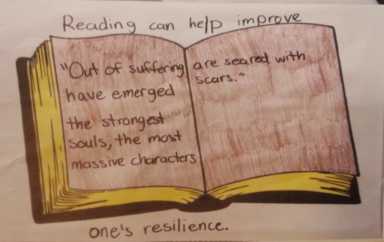 Reading can help improve
"Out of suffering
have emerged
the strongest
souls, the most
massive characters
are seared with
scars."
one's resilience.